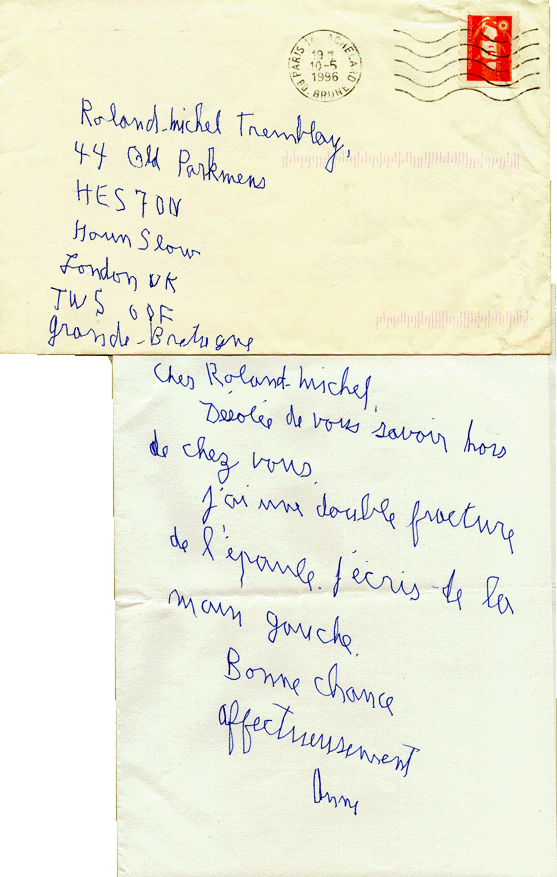 PARIS
19 H
10-5
1996
BRUNE
Roland-Michel Tremblay,
44 Old Parkmens
HES 7 ON
Houn Slow
London UK
TW5 00F
Grande-Bretagne
Cher Roland-Michel,
Désolée de vous savoir hors
de chez vous.
J'ai une double fracture
de l'épaule. J'écris de la
main gauche.
Bonne chance
affectueusement
Anne